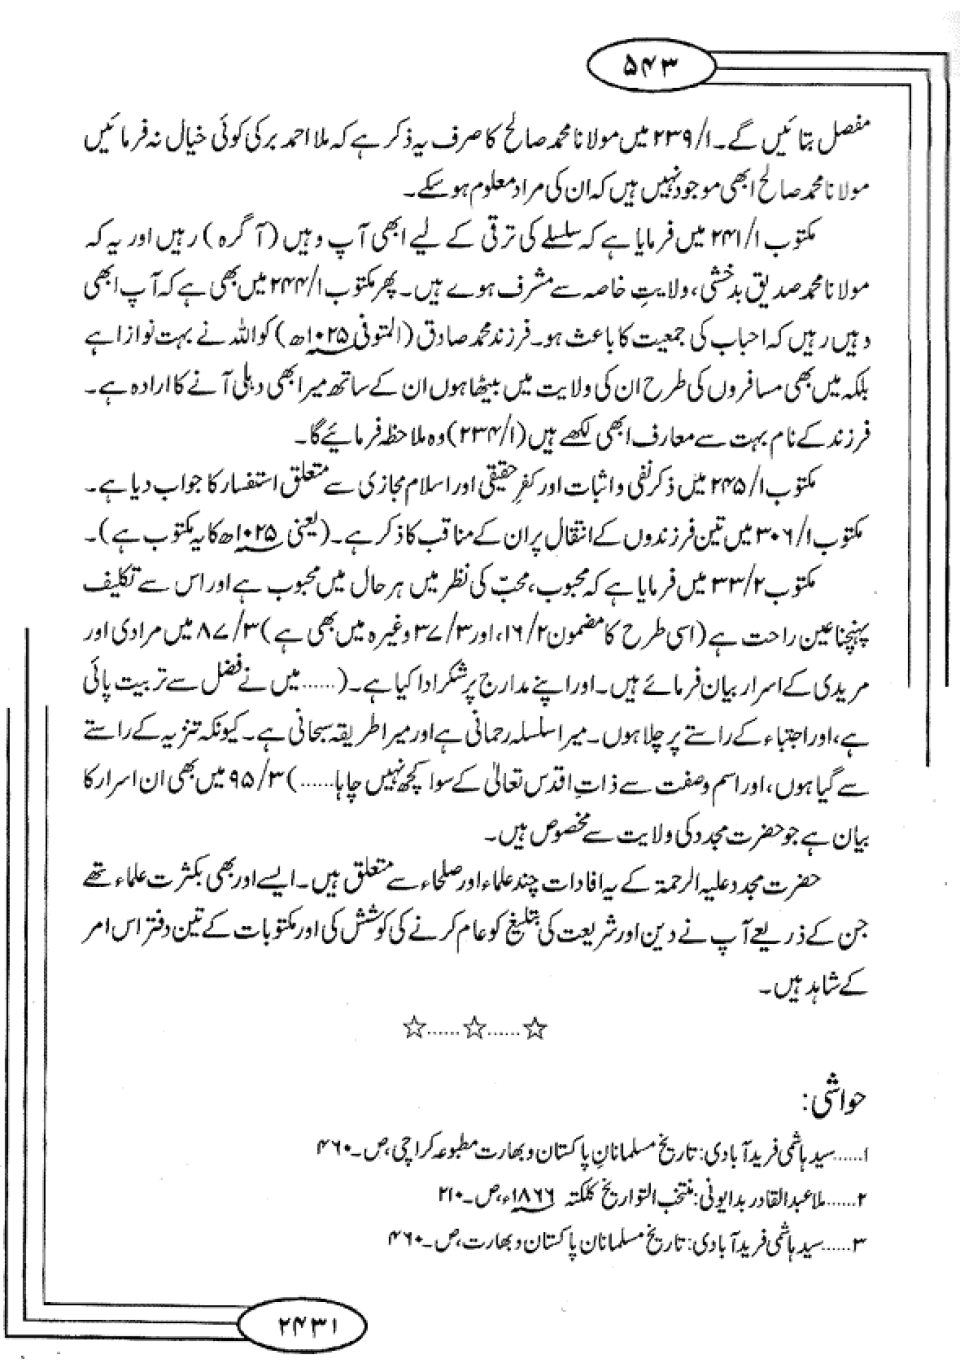 ۵۴۳
مفصل بتائیں گے۔ ۲۳۹/۱ میں مولانا محمد صالح کا صرف یہ ذکر ہے کہ ملا احمد برکی کوئی خیال نہ فرمائیں
مولانا محمد صالح ابھی موجود نہیں ہیں کہ ان کی مراد معلوم ہو سکے۔
مکتوب ۲۴۱/۱ میں فرمایا ہے کہ سلسلے کی ترقی کے لیے ابھی آپ وہیں (آگرہ) رہیں اور یہ کہ
مولانا محمد صدیق بدخشی، ولایتِ خاصہ سے مشرف ہوے ہیں۔ پھر مکتوب ۲۴۴/۱ میں بھی ہے کہ آپ ابھی
وہیں رہیں کہ احباب کی جمعیت کا باعث ہو۔ فرزند محمد صادق (المتوفی ۱۰۲۵ھ) کو اللہ نے بہت نوازا ہے
بلکہ میں بھی مسافروں کی طرح ان کی ولایت میں بیٹھا ہوں ان کے ساتھ میرا بھی دہلی آنے کا ارادہ ہے۔
فرزند کے نام بہت سے معارف ابھی لکھے ہیں (۲۳۴/۱) وہ ملاحظہ فرمائیے گا۔
مکتوب ۲۴۵/۱ میں ذکر نفی و اثبات اور کفرِ حقیقی اور اسلام مجازی سے متعلق استفسار کا جواب دیا ہے۔
مکتوب ۳۰۶/۱ میں تین فرزندوں کے انتقال پر ان کے مناقب کا ذکر ہے۔ (یعنی ۱۰۲۵ھ کا یہ مکتوب ہے)۔
مکتوب ۳۳/۲ میں فرمایا ہے کہ محبوب، محبّ کی نظر میں ہر حال میں محبوب ہے اور اس سے تکلیف
پہنچنا عین راحت ہے (اسی طرح کا مضمون ۱۶/۲، اور ۳۷/۳ وغیرہ میں بھی ہے) ۸۷/۳ میں مرادی اور
مریدی کے اسرار بیان فرمائے ہیں۔ اور اپنے مدارج پر شکر ادا کیا ہے۔ (...... میں نے فضل سے تربیت پائی
ہے، اور اجتباء کے راستے پر چلا ہوں۔ میرا سلسلہ رحمانی ہے اور میرا طریقہ سبحانی ہے۔ کیونکہ تنزیہ کے راستے
سے گیا ہوں، اور اسم و صفت سے ذاتِ اقدس تعالیٰ کے سوا کچھ نہیں چاہا......) ۹۵/۳ میں بھی ان اسرار کا
بیان ہے جو حضرت مجدد کی ولایت سے مخصوص ہیں۔
حضرت مجدد علیہ الرحمۃ کے یہ افادات چند علماء اور صلحاء سے متعلق ہیں۔ ایسے اور بھی بکثرت علماء تھے
جن کے ذریعے آپ نے دین اور شریعت کی تبلیغ کو عام کرنے کی کوشش کی اور مکتوبات کے تین دفتر اس امر
کے شاہد ہیں۔
☆......☆......☆
حواشی:
۱......سید ہاشمی فرید آبادی: تاریخ مسلمانانِ پاکستان و بھارت مطبوعہ کراچی، ص۔۴۶۰
۲......ملا عبدالقادر بدایونی: منتخب التواریخ کلکتہ ۱۸۶۶ء، ص۔۲۱۰
۳......سید ہاشمی فرید آبادی: تاریخ مسلمانان پاکستان و بھارت، ص۔۴۶۰
۲۴۳۱